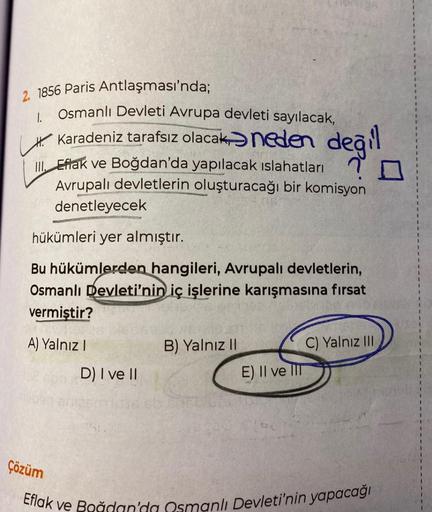 2. 1856 Paris Antlaşması'nda;
I. Osmanlı Devleti Avrupa devleti sayılacak,
II. Karadeniz tarafsız olacak, → neden değil
III. Eflak ve Boğdan'da yapılacak ıslahatları ?
Avrupalı devletlerin oluşturacağı bir komisyon
denetleyecek
hükümleri yer almıştır.
Bu hükümlerden hangileri, Avrupalı devletlerin,
Osmanlı Devleti'nin iç işlerine karışmasına fırsat
vermiştir?
A) Yalnız I B) Yalnız II C) Yalnız III
D) I ve II E) II ve III
Çözüm
Eflak ve Boğdan'da Osmanlı Devleti'nin yapacağı